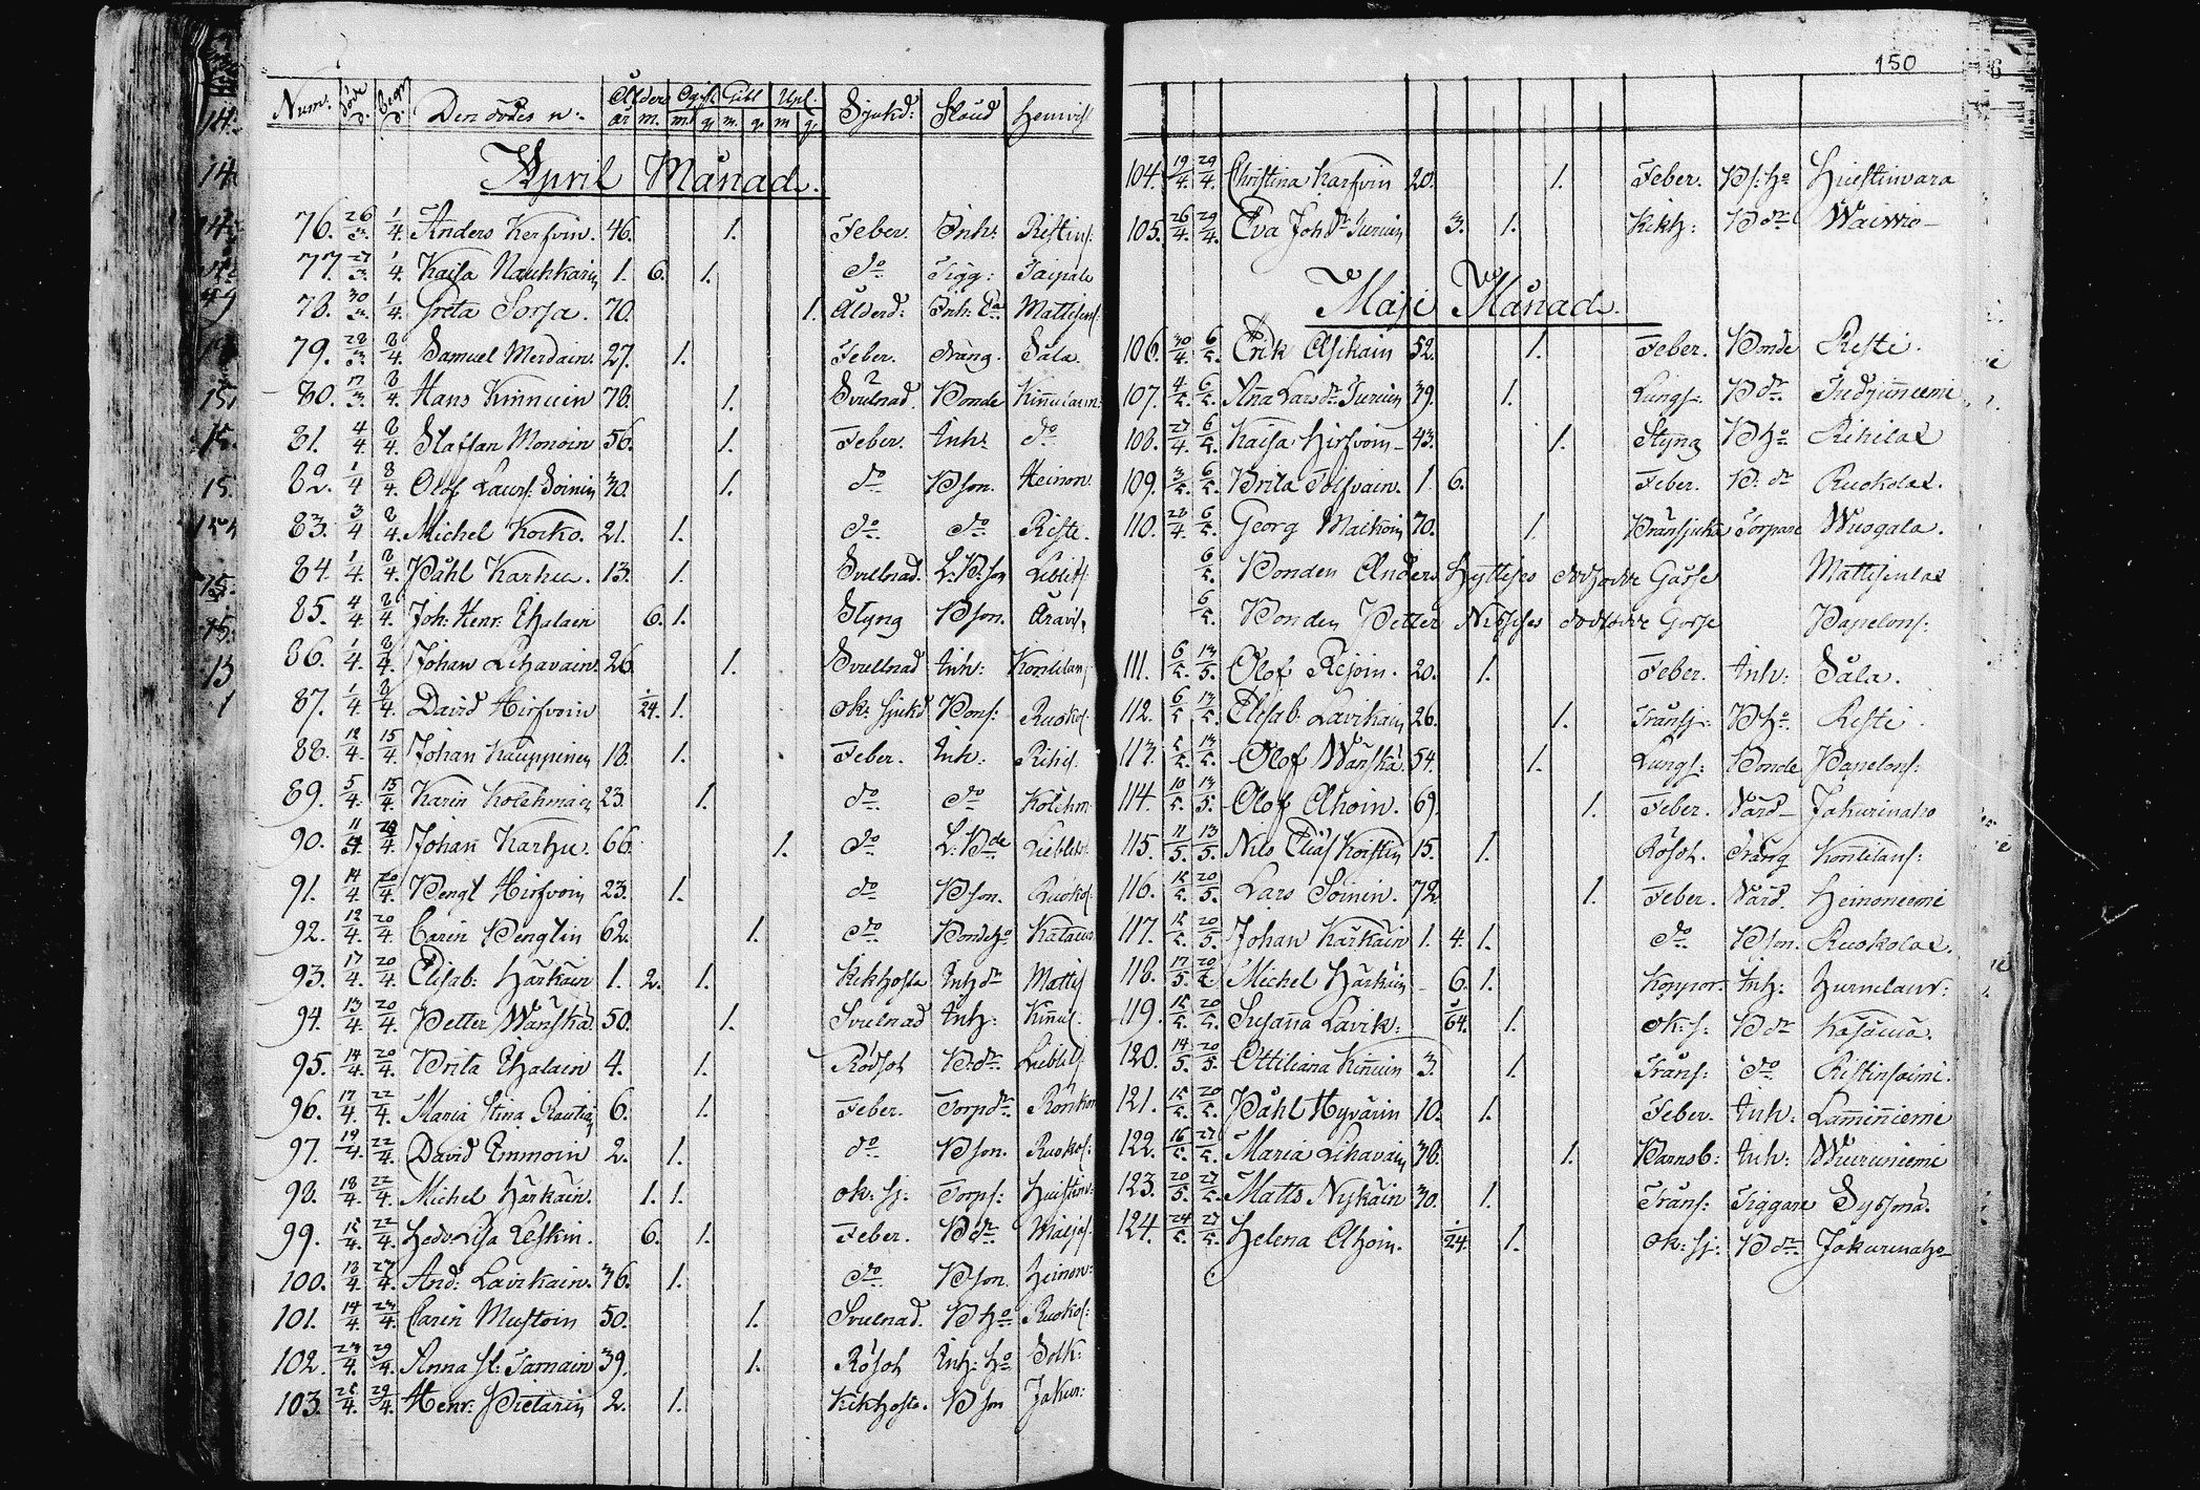 150
Num. Död d. Begr. d. Den dödes n:. Ålder Ogift Gift Upl. Sjukd: Stånd Hemvist
år m. m. q. m. q. m q.
April Månad.
76. 26/3. 1/4. Anders Kerfvin. 46. 1. Feber. Inh: Ristins:
77. 27/3. 1/4. Kaisa Nauhkarin 1. 6. 1. do Tigg: Taipale
78. 30/3. 1/4. Greta Sorsa. 70. 1. Ålderd: Inh: Mattisens:
79. 28/3 8/4. Samuel 27. 1. Feber. dräng. Sàla.
80. 17/3. 8/4. Hans Kinnuin 78. 1. Svulnad. Bonde Kinnulann:
81. 4/4. 8/4. Staffan Monoin 56. 1. Feber. Inh: do
82. 1/4 8/4. Olof Laurs: Soinin 30. 1. do Bson. Heinon:
83. 3/4 8/4. Michel Korko. 21. 1. do do Riste.
84. 1/4. 8/4. Påhl Karhu. 13. 1. Svullnad. L: B: son Liblits:
85. 4/4. 8/4. Joh: Henr: Ihalain 6. 1. Styng Bson. Aravis.
86. 1/4. 8/4. Johan Lihavain. 26. 1. Svullnad Inh: Kontilans:
87. 1/4. 8/4. David Hirfvoin 24. 1. ok: sjukd Bons: Ruokol:
88. 12/4. 15/4. Johan Kauppinen 18. 1. Feber. Inh: Rihil:
89. 5/4. 15/4. Karin Kolehmain 23. 1. do do Kolehm:
90. 11/4. 20/4. Johan Karhu. 66. 1. do L: Bde Liblits:
91. 14/4. 20/4. Bengt Hirfvoin 23. 1. do Bson. Ruokol:
92. 12/4. 20/4. Carin Penglin 62. 1. do Bondeho Katawa
93. 17/4. 20/4. Elisab: Härkäin 1. 2. 1. Kikhosta Inh dr Mattis
94. 13/4. 20/4. Petter Wänskä 50. 1. Svulnad Inh: Kinnul:
95. 14/4. 20/4. Brita Ihalain 4. 1. Rödsot B: dr Liblits
96. 17/4. 22/4. Maria Stina Rautia 6. 1. Feber. Torpdr. Ronkon
97. 19/4. 22/4. David Immoin 2. 1. do Bson. Ruokol:
98. 18/4. 22/4. Michel Härkäin. 1. 1. ok: sj: Torps: Huistinv:
99. 15/4. 22/4. Hedv: Lisa Leskin. 6. 1. Feber. B dr Maijas:
100. 18/4. 27/4. And: Lavikain. 36. 1. do Bson. Heinon:
101. 14/4. 23/4. Carin Mustoin 50. 1. Svulnad. B ho Ruokol:
102. 23/4. 29/4. Anna st: Tamain 39. 1. Rösot Inh: ho Solk:
103. 25/4. 29/4. Henr: Pietarin 2. 1. Kikhosta. B son Jakur:
104. 19/4. 29/4. Christina Karfvin 20. 1. Feber. B: ho Huistinvara
105. 26/4. 29/4. Eva Joh dr Turuin 3. 1. Kikh: B dr Waivio
Maji Månad.
106. 30/4. 6/5. Erik Asikain 52. 1. Feber. Bonde Risti.
107. 4/5. 6/5. Anna Lars dr Turuin 39. 1. Lungs: B dr
108. 27/4. 6/5. Kaisa Hirfvoin 43. 1. Styng B ho Rihilax
109. 3/5. 6/5. Brita Toifvain. 1. 6. Feber. B: dr Ruokolax.
110. 28/4. 6/5. Georg Maikoin 70. 1. Bränsjuka Torpare Wuogala.
6/5. Bonden Anders Hyttises dödfödde Gåsse Mattisenlax
6/5. Bonden Petter dödfödde Gosse Papelons:
111. 6/5. 13/5. Olof Rejoin. 20. 1. Feber. Inh: Sàla.
112. 6/5 13/5. Elisab: Lavikain 26. 1. Tränsj: B ho. Risti
113. 5/5. 13/5. Olof Wänskä. 54. 1. Lungs: Bonde Papelons:
114. 10/5. 13/5. Olof Ahoin. 69. 1. Feber. Vård Jakurinaho
115. 11/5. 13/5. Nils Elias Korstin 15. 1. Rösot. Dräng Kontilans:
116. 15/5. 20/5. Lars Soinin. 72. 1. Feber. Vård. Heinoneemi
117. 15/5. 20/5. Johan Kärkäin 1. 4. 1. do B son. Ruokolax.
118. 17/5. 20/5 Michel Härkäin 6. 1. Koppor Inh: Hurnelaur:
119. 15/5. 20/5. Susanna Lavik: 5/64. 1. ok: s: B dr Käsämä.
120. 14/5. 20/5. Ottiliana Kinuin 3. 1. Träns: do Ristinsaimi.
121. 15/5. 20/5. Påhl Hyvärin 10. 1. Feber. Inh: Lamminniemi
122. 16/5. 27/5. Maria Lihavain 38. 1. Barnsb: Inh: Wuoriniemi
123. 20/5. 27/5. Matts Nykäin 30. 1. Träns: Tiggare Sysmä.
124. 24/5. 27/5. Helena Ahoin. 24. 1. ok: sj: B dr Jakurinaho